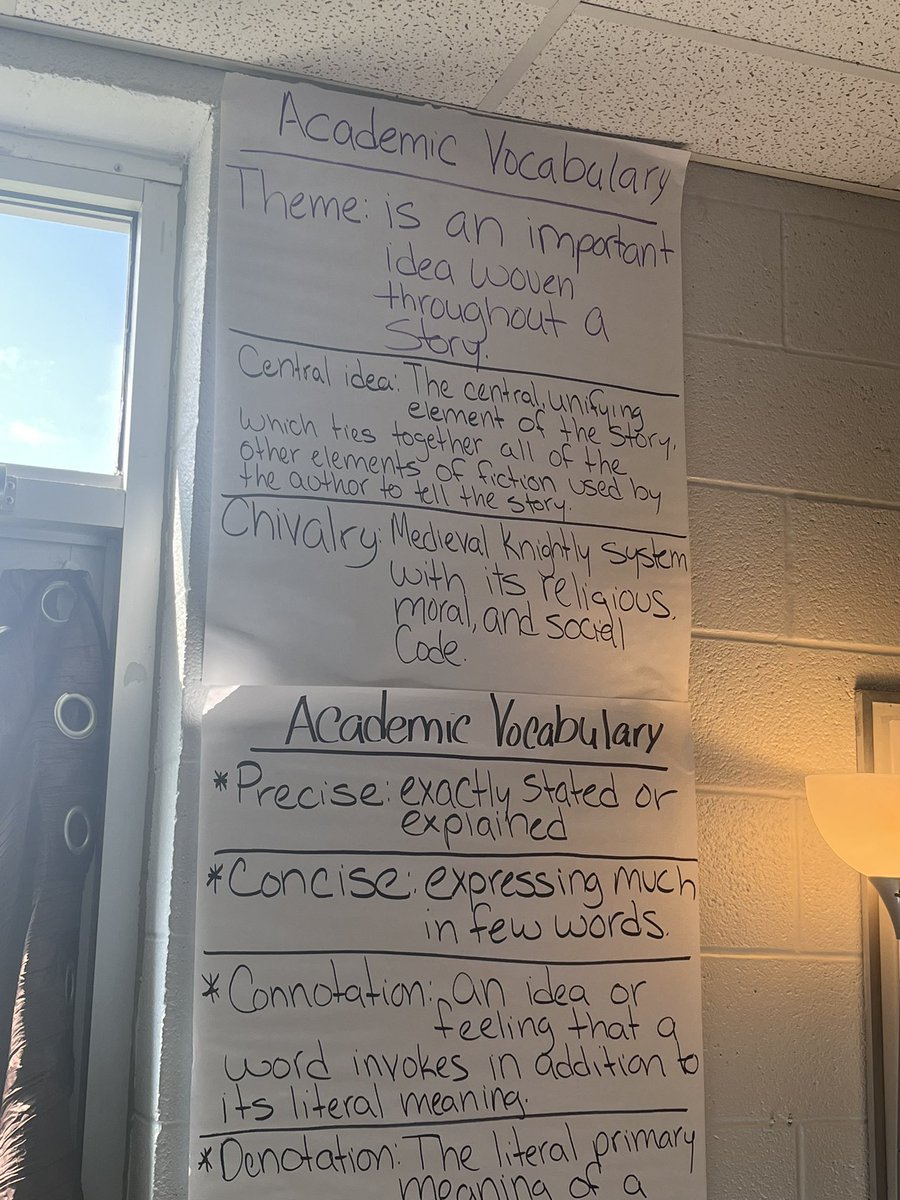 Academic Vocabulary
Theme: is an important
idea woven
throughout a
Story.
Central idea: The central, unifying
element of the story,
which ties together all of the
other elements of fiction used by
the author to tell the story.
Chivalry: Medieval Knightly system
with its religious,
moral, and social
Code.
Academic Vocabulary
*Precise: exactly stated or
explained
*Concise: expressing much
in few words.
*Connotation: An idea or
feeling that a
word invokes in addition to
its literal meaning.
*Denotation: The literal primary
meaning of a